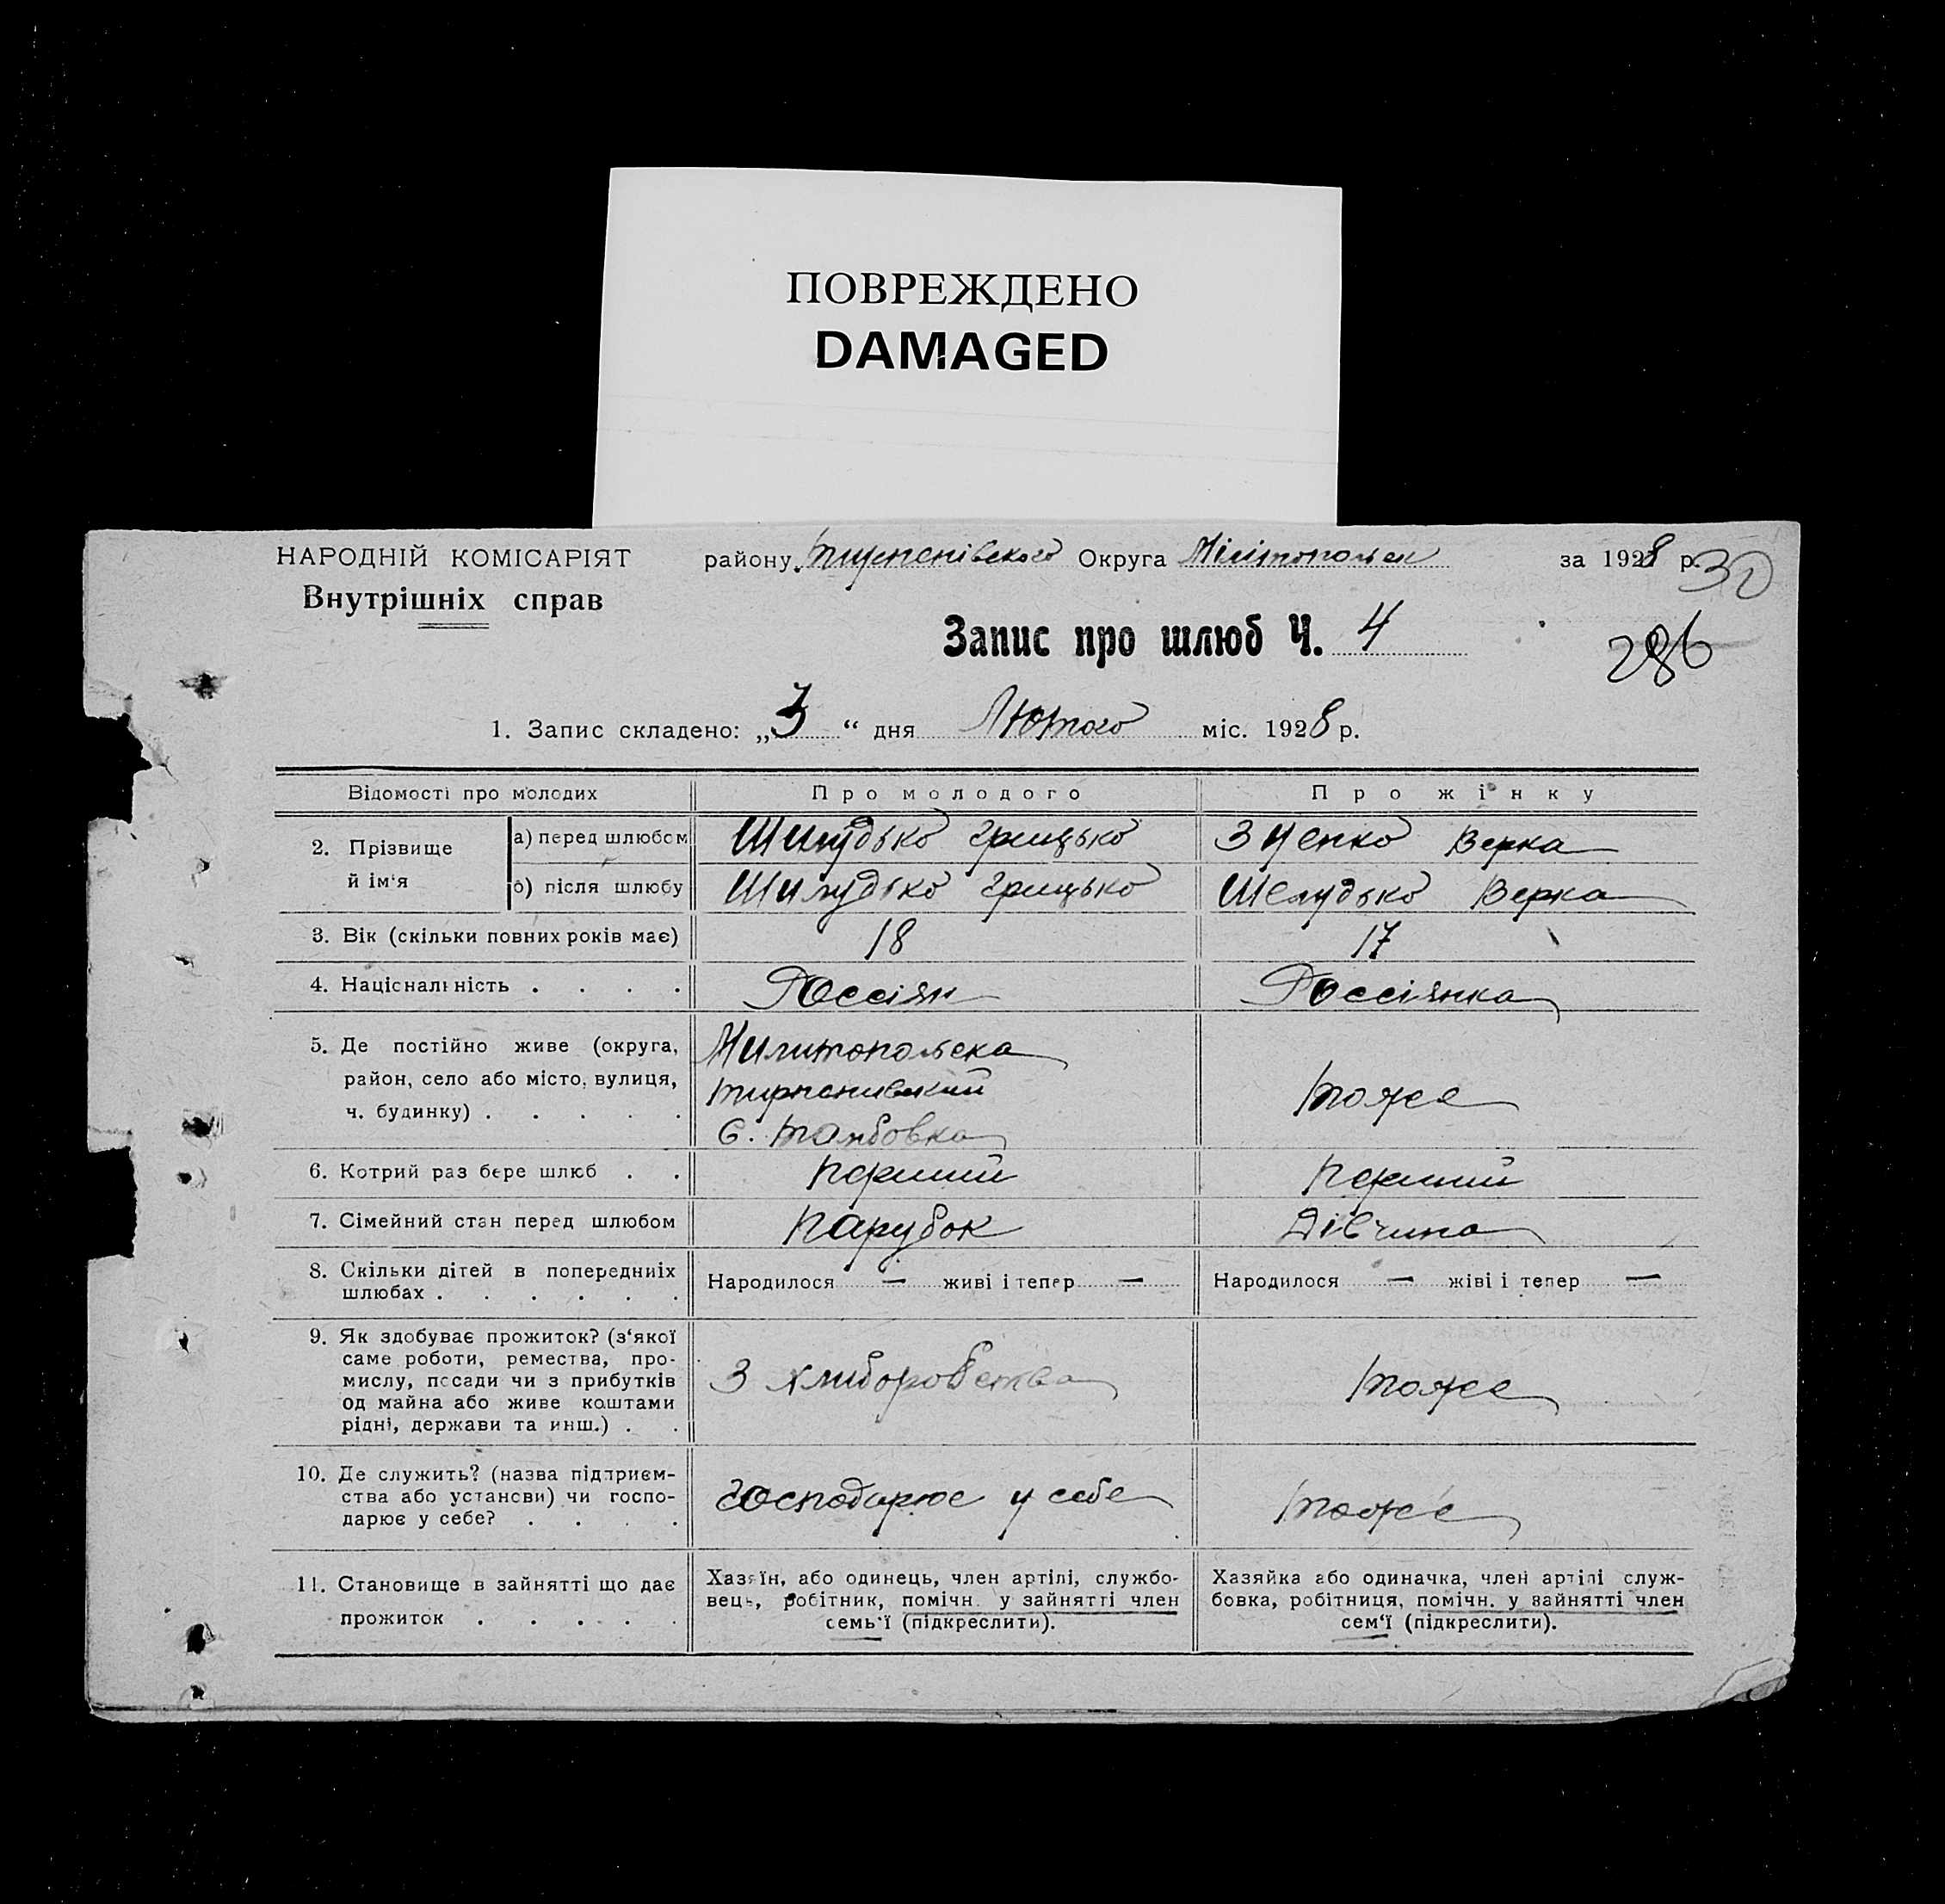 ПОВРЕЖДЕНО
DAMAGED
НАРОДНІЙ КОМІСАРІЯТ
Внутрішніх справ
району Тирпенівського Округа Мілітопольск за 1928 р. 30
Запис про шлюб Ч. 4
286
1. Запис складено: „3“ дня Лютого міс. 1928 р.
Відомості про молодих
Про молодого
Про жінку
2. Прізвище й ім‘я
а) перед шлюбом
Шилудько Грицько
Верка
б) після шлюбу
Шилудько Грицько
Шелудько Верка
3. Вік (скільки повних років має)
18
17
4. Національність . . . .
Россіян
Россіянка
5. Де постійно живе (округа,
район, село або місто, вулиця,
ч. будинку) . . . . .
Милитопольска
Тирпенивский
С. Тамбовка
тоже
6. Котрий раз бере шлюб . .
перший
перший
7. Сімейний стан перед шлюбом
парубок
Дівчина
8. Скільки дітей в попередниіх
шлюбах . . . . . .
Народилося — живі і тепер —
Народилося — жіві і тепер —
9. Як здобуває прожиток? (з‘якої
саме роботи, ремества, про-
мислу, посади чи з прибутків
од майна або живе коштами
рідні, держави та инш.) . .
З хлиборобства
тоже
10. Де служить? (назва підприєм-
ства або установи) чи госпо-
дарює у себе? . . . .
господарюе у себе
тоже
11. Становище в зайнятті що дає
прожиток . . . . .
Хазяїн, або одинець, член артілі, службо-
вець, робітник, помічн. у зайнятті член
семь‘ї (підкреслити).
Хазяйка або одиначка, член артілі служ-
бовка, робітниця, помічн. у зайнятті член
сем‘ї (підкреслити).